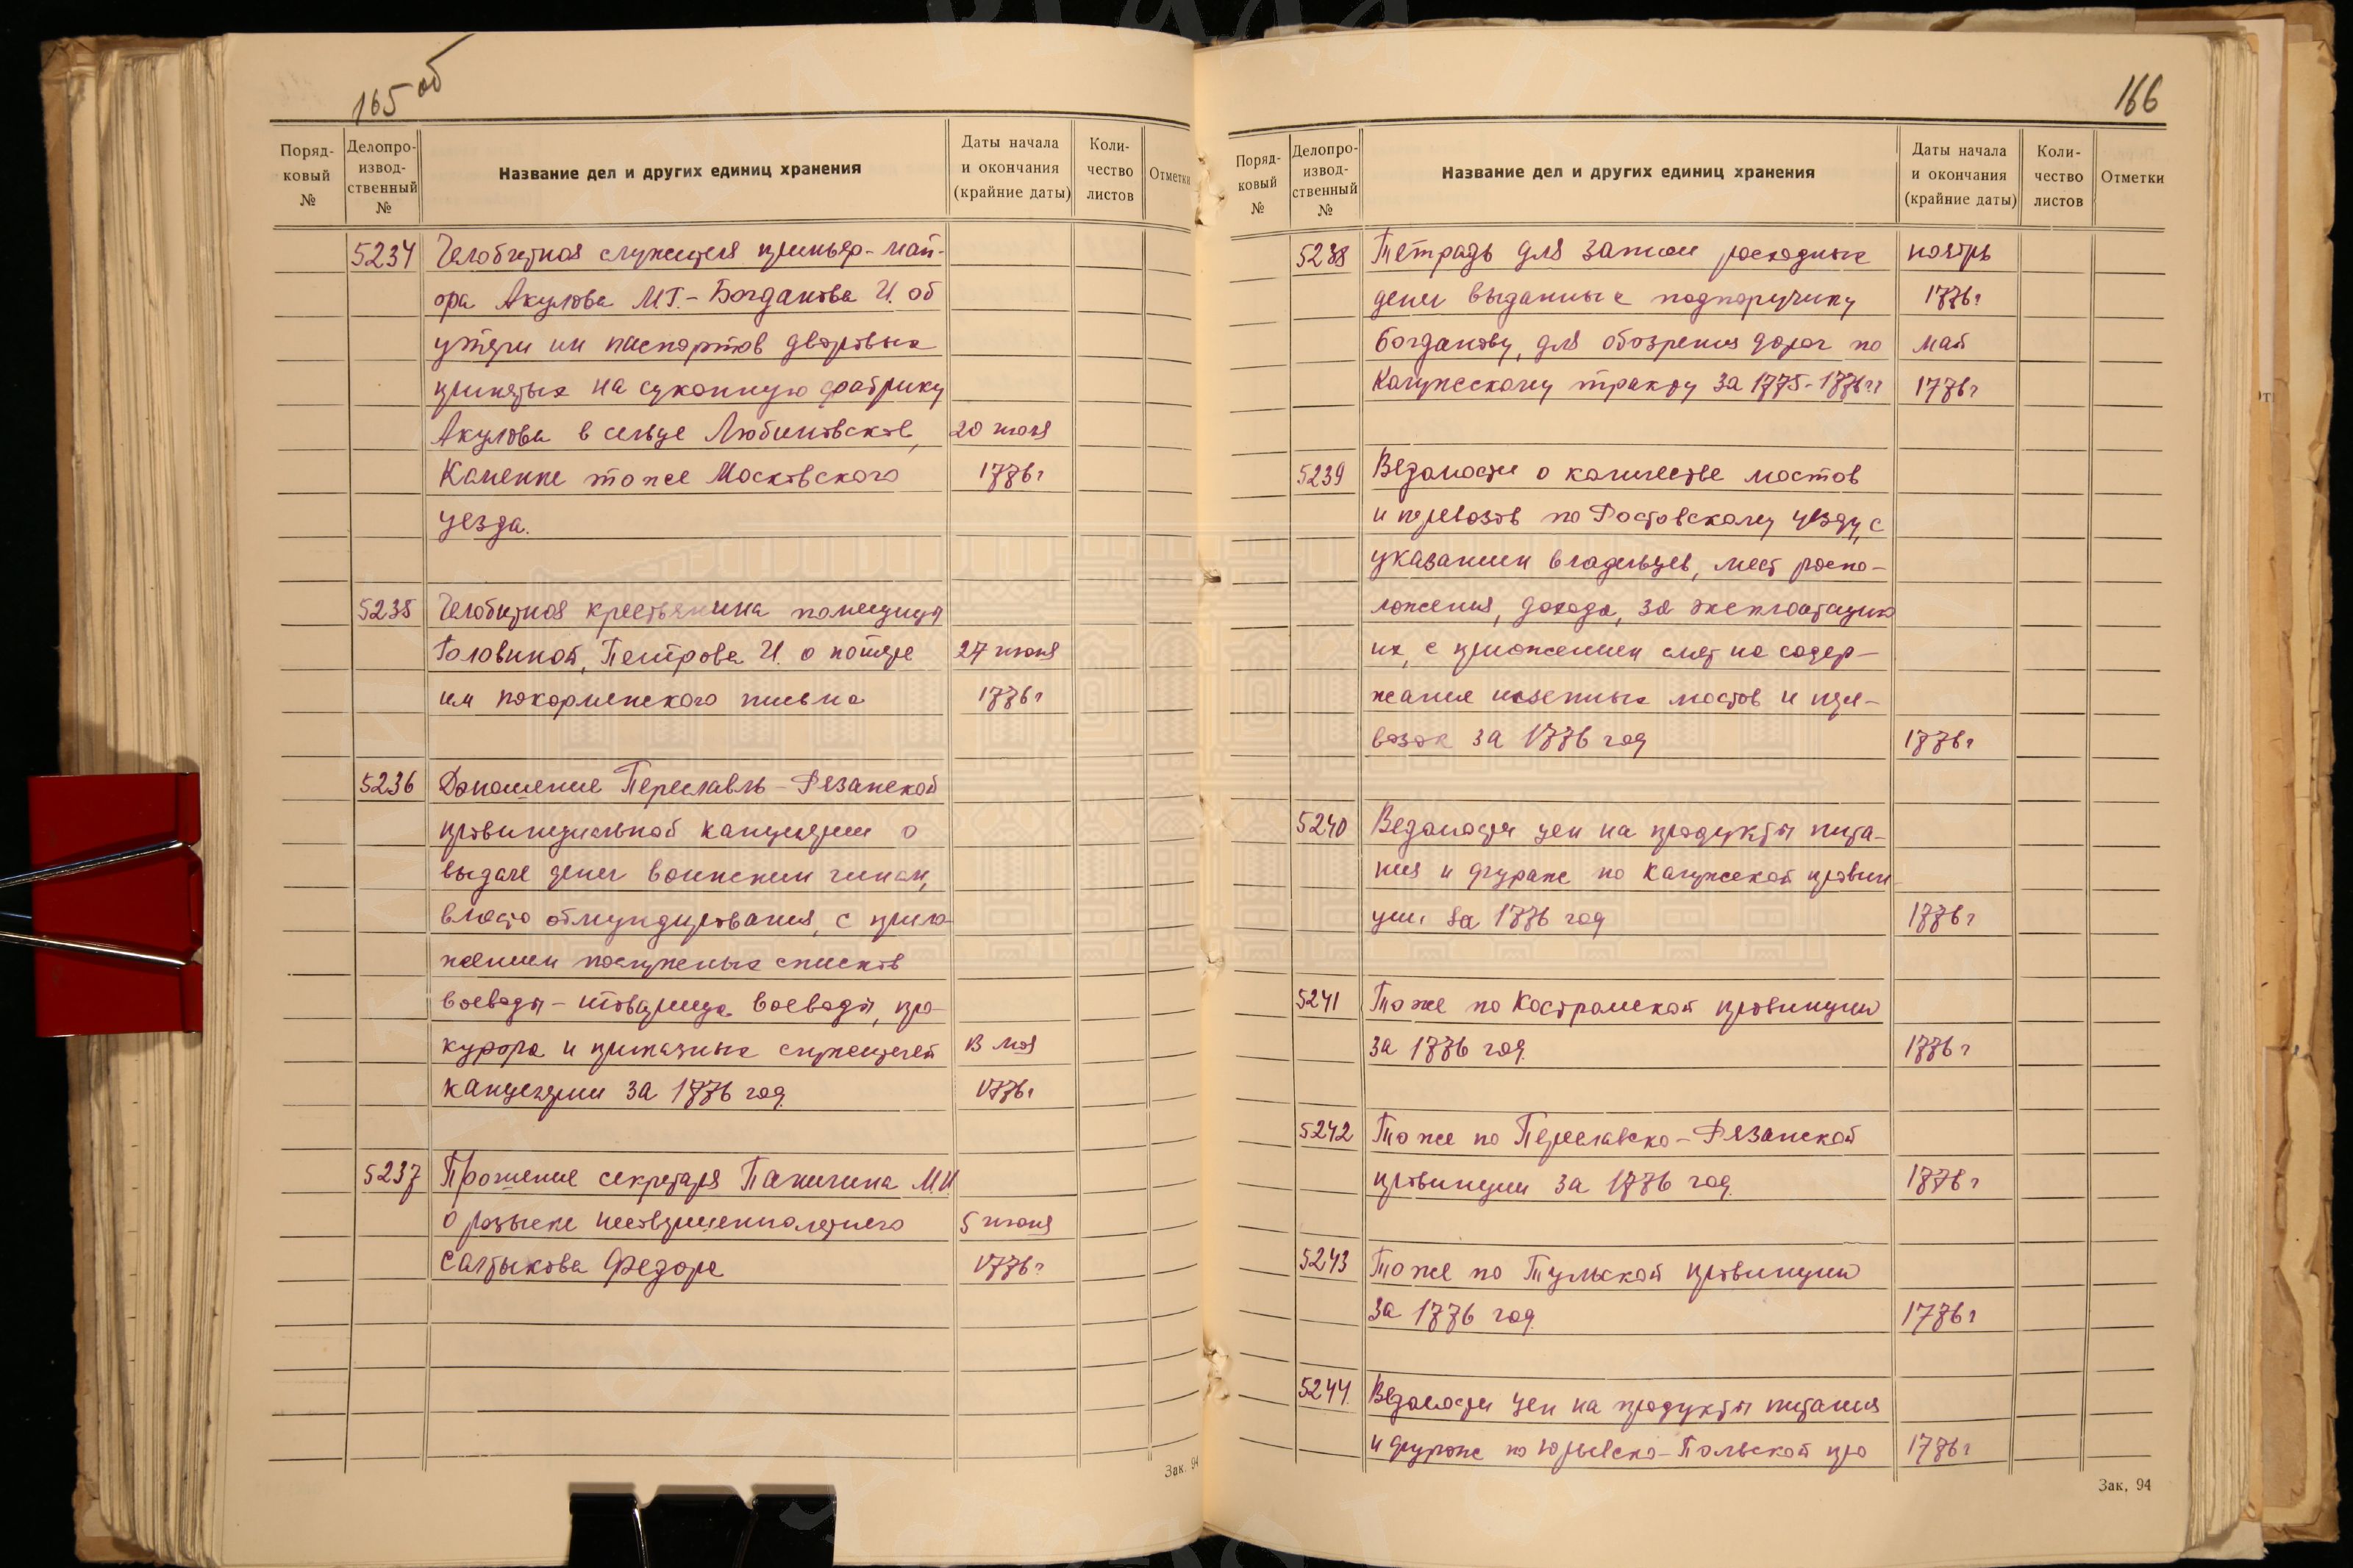 165 об
Поряд-
ковый
№
Делопро-
извод-
ственный
№
Название дел и других единиц хранения
Даты начала
и окончания
(крайние даты)
Коли-
чество
листов
Отметки
5234 Челобитная служителя премьер-май-
ора Акулова М.Г. – Богданова И. об
утери им паспортов дворовых
принятых на суконную фабрику
Акулова в сельце Любимовское, 20 июня
Каменке тоже Московского 1776 г
уезда.
5235 Челобитная крестьянина помещицы
Головиной, Петрова И. о потере 27 июня
им покормежского письма 1776 г
5236 Доношение Переславль-Рязанской
провинциальной канцелярии о
выдаче денег воинским чинам,
вместо обмундирования, с прило-
жением послужных списков
воеводы – товарища воеводы, про-
курора и приказных служителей 13 мая
канцелярии за 1776 год 1776 г
5237 Прошение секретаря Паничина М.И.
о розыске несовершеннолетнего 5 июня
Салтыкова Федора 1776 г
Зак. 94
166
Поряд-
ковый
№
Делопро-
извод-
ственный
№
Название дел и других единиц хранения
Даты начала
и окончания
(крайние даты)
Коли-
чество
листов
Отметки
5238 Тетрадь для записи расходных ноябрь
денег выданных подпоручику 1776 г
Богданову, для обозрения дорог по май
Калужскому тракту за 1775-1776 гг 1776 г
5239 Ведомости о количестве мостов
и перевозов по Ростовскому уезду, с
указанием владельцев, мест распо-
ложения, дохода, за эксплоатацию
их, с приложением смет на содер-
жание казенных мостов и пере-
возок за 1776 год 1776 г
5240 Ведомости цен на продукты пита-
ния и фураж по Калужской провин-
ции за 1776 год 1776 г
5241 Тоже по Костромской провинции
за 1776 год 1776 г
5242 Тоже по Переславско-Рязанской
провинции за 1776 год. 1776 г
5243 Тоже по Тульской провинции
за 1776 год. 1776 г
5244. Ведомости цен на продукты питания
и фураж по Юрьевско-Польской про 1776 г
Зак. 94